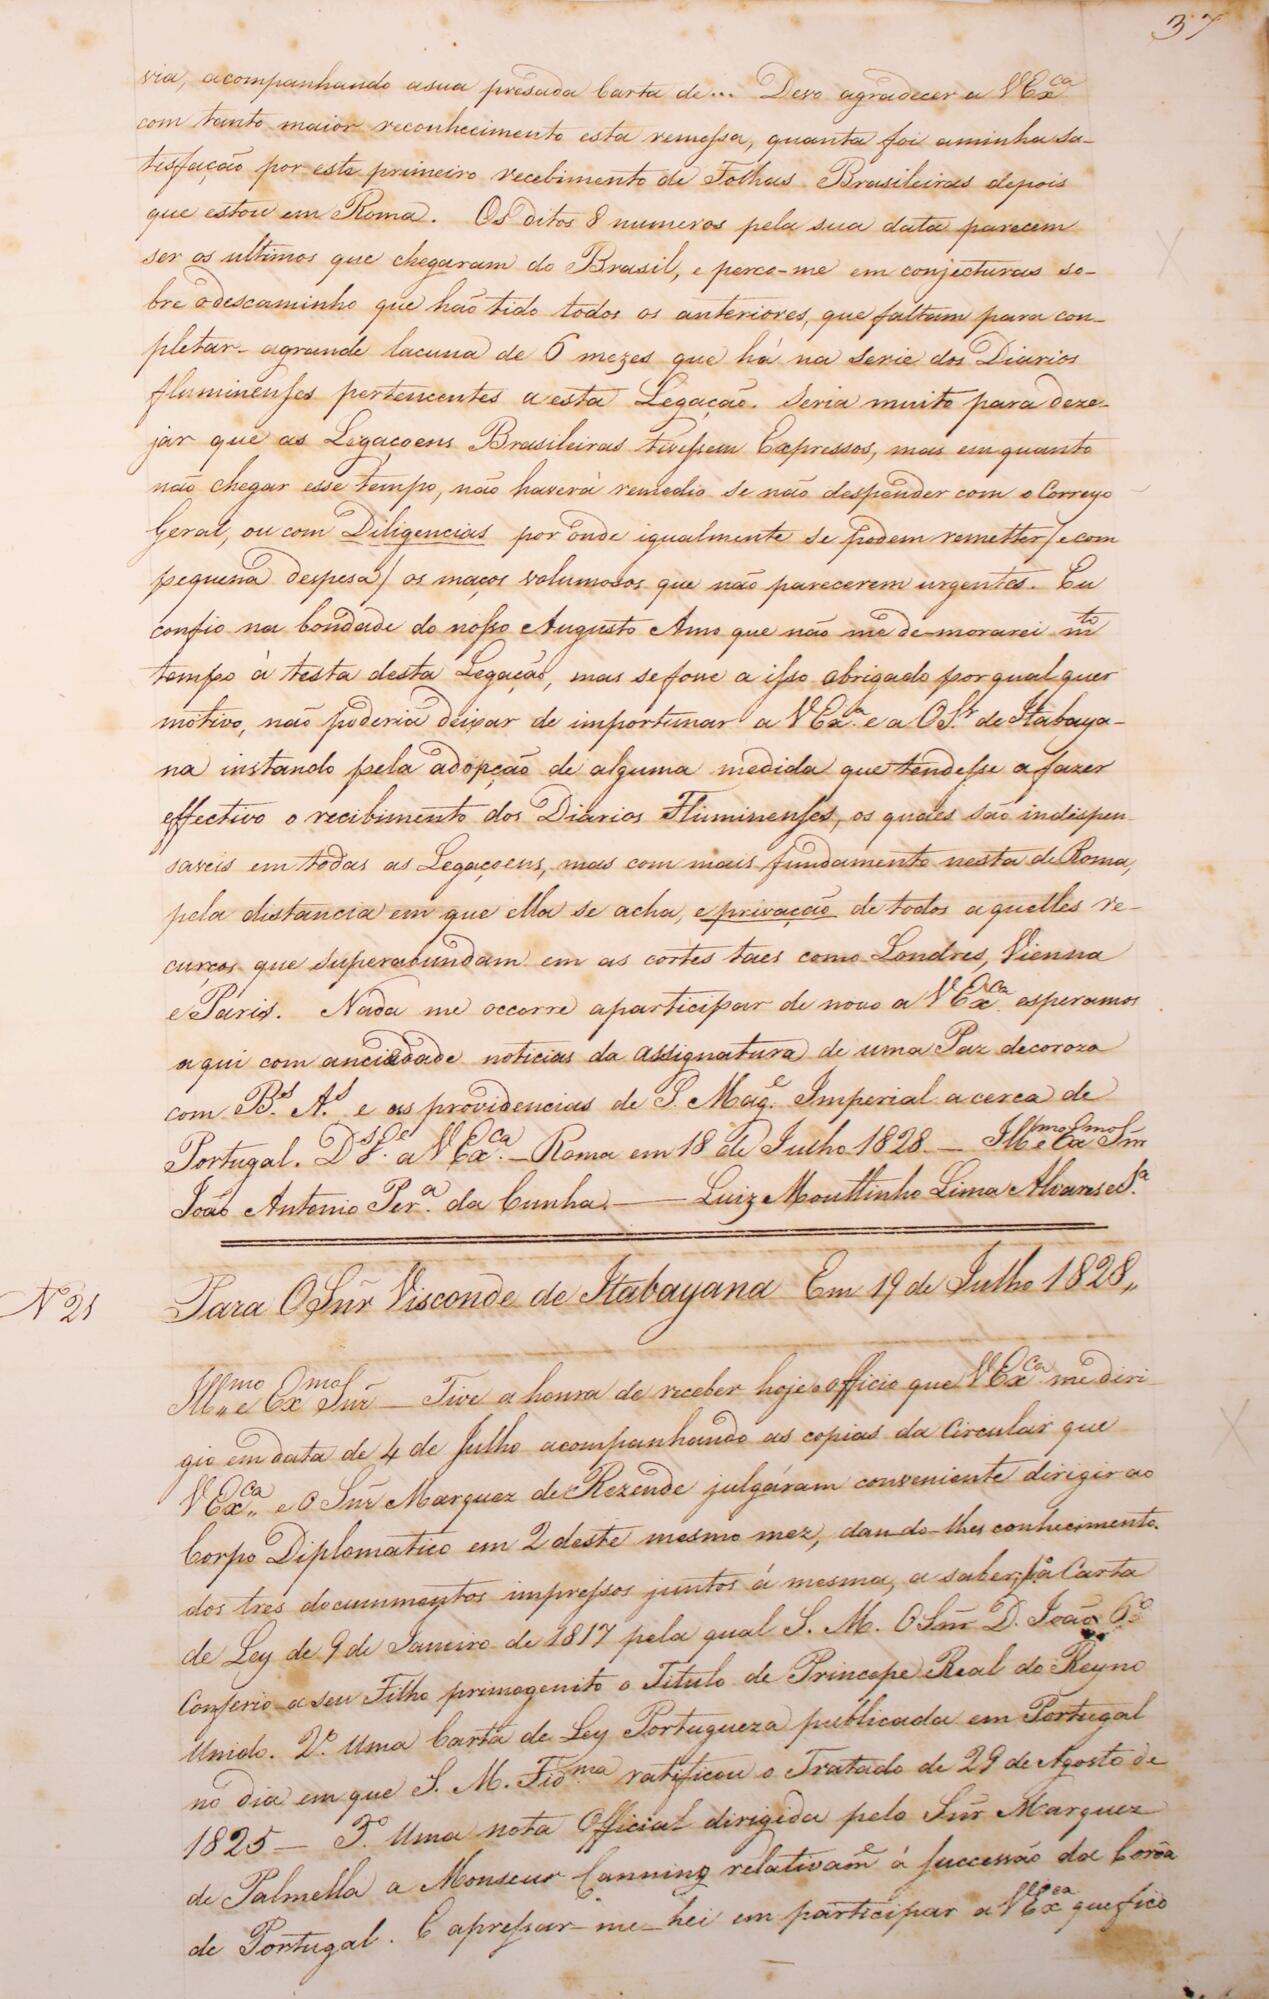 37
via, acompanhando a sua presada Carta de... Devo agradecer a VExca
com tanto maior reconhecimento esta remessa, quanta foi aminha sa-
tisfação por este primeiro recebimento de Folhas Brasileiras depois
que estou em Roma. Os ditos 8 numeros pela sua data parecem
ser os ultimos que chegaram do Brasil, e perco-me em conjecturas so-
bre odescaminho que hão tido todos os anteriores, que faltam para con-
pletar agrande lacuna de 6 mezes que há na serie dos Diarios
fluminenses pertencentes a esta Legação. Seria muito para deze-
jar que as Legaçoens Brasileiras tivessem Expressos, mas em quanto
não chegar esse tempo, não haverá remedio se não despender com o Correyo
Geral, ou com Diligencias por onde igualmente se podem remetter/ e com
pequena despesa/ os maços volumosos que não parecerem urgentes. Eu
confio na bondade do nosso Augusto Amo que não me de-morarei mto
tempo á testa desta Legação, mas se fosse a isso obrigado por qual quer
motivo, não poderia deixar de importunar a VExa. e a OSr. de Itabaya-
na instando pela adopção de alguma medida que tendesse a fazer
effectivo o recibimento dos Diarios Fluminenses, os quaes são indispen-
saveis em todas as Legaçoens, mas com mais fundamento nesta de Roma,
pela distancia em que ella se acha, e privação de todos aquelles re-
curços que superabundam em as cortes taes como Londres, Vienna
e Paris. Nada me occorre aparticipar de novo a VExca. esperamos
aqui com anciedade noticias da assignatura de uma Paz decoroza
com Bs. As. e as providencias de S. Mage. Imperial acerca de
Portugal. Ds. ge. a VExca. — Roma em 18 de Julho 1828. — Illmo e Exmo Snr
João Antonio Pera. da Cunha. — Luiz Mouttinho Lima Alvares e Sa.
No 21
Para O Snr Visconde de Itabayana Em 19 de Julho 1828,,
Illmo e Exmo Snr — Tive a honra de receber hoje o officio que VExca. me diri-
gio em data de 4 de Julho acompanhando as copias da Circular que
VExca,, e O Snr Marquez de Rezende julgáram conveniente dirigir ao
Corpo Diplomatico em 2 deste mesmo mez, dan-do-lhes conhecimento
dos tres documentos impressos juntos á mesma, a saber: 1º a Carta
de Ley de 9 de Janeiro de 1817 pela qual S. M. O Snr D. João 6º
Conferio a seu Filho primogenito o Titulo de Principe Real do Reyno
Unido. 2º. Uma Carta de Ley Portugueza publicada em Portugal
no dia em que S. M. Fidma. ratificou o Tratado de 29 de Agosto de
1825 — 3º. Uma nota Official dirigida pelo Snr Marquez
de Palmella a Monseur Canning relativame á successão da Corôa
de Portugal. E apressar-me-hei em participar a VExca que fico